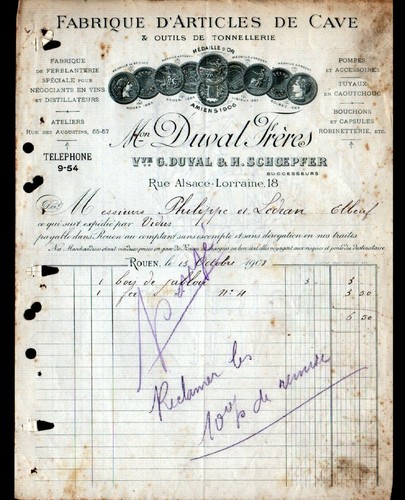 FABRIQUE D'ARTICLES DE CAVE
& OUTILS DE TONNELLERIE
MÉDAILLE D'OR
AMIENS 1906
FABRIQUE
DE FERBLANTERIE
SPÉCIALE POUR
NÉGOCIANTS EN VINS
ET DISTILLATEURS
ATELIERS
RUE DES AUGUSTINS, 65-67
TELEPHONE
9-54
POMPES
ET ACCESSOIRES
TUYAUX
EN CAOUTCHOUC
BOUCHONS
ET CAPSULES
ROBINETTERIE, ETC.
Mon Duval Frères
Vve G. DUVAL & H. SCHŒPFER
SUCCESSEURS
Rue Alsace-Lorraine, 18
Doit Messieurs Philippe et Elbeuf
ce qui suit expédié par
payable dans Rouen au comptant sans escompte et sans dérogation en nos traites
ROUEN, le 15 Octobre 190
1 bois de 3
1 No 4 3 50
6 50
Réclamer les
10 % de remise